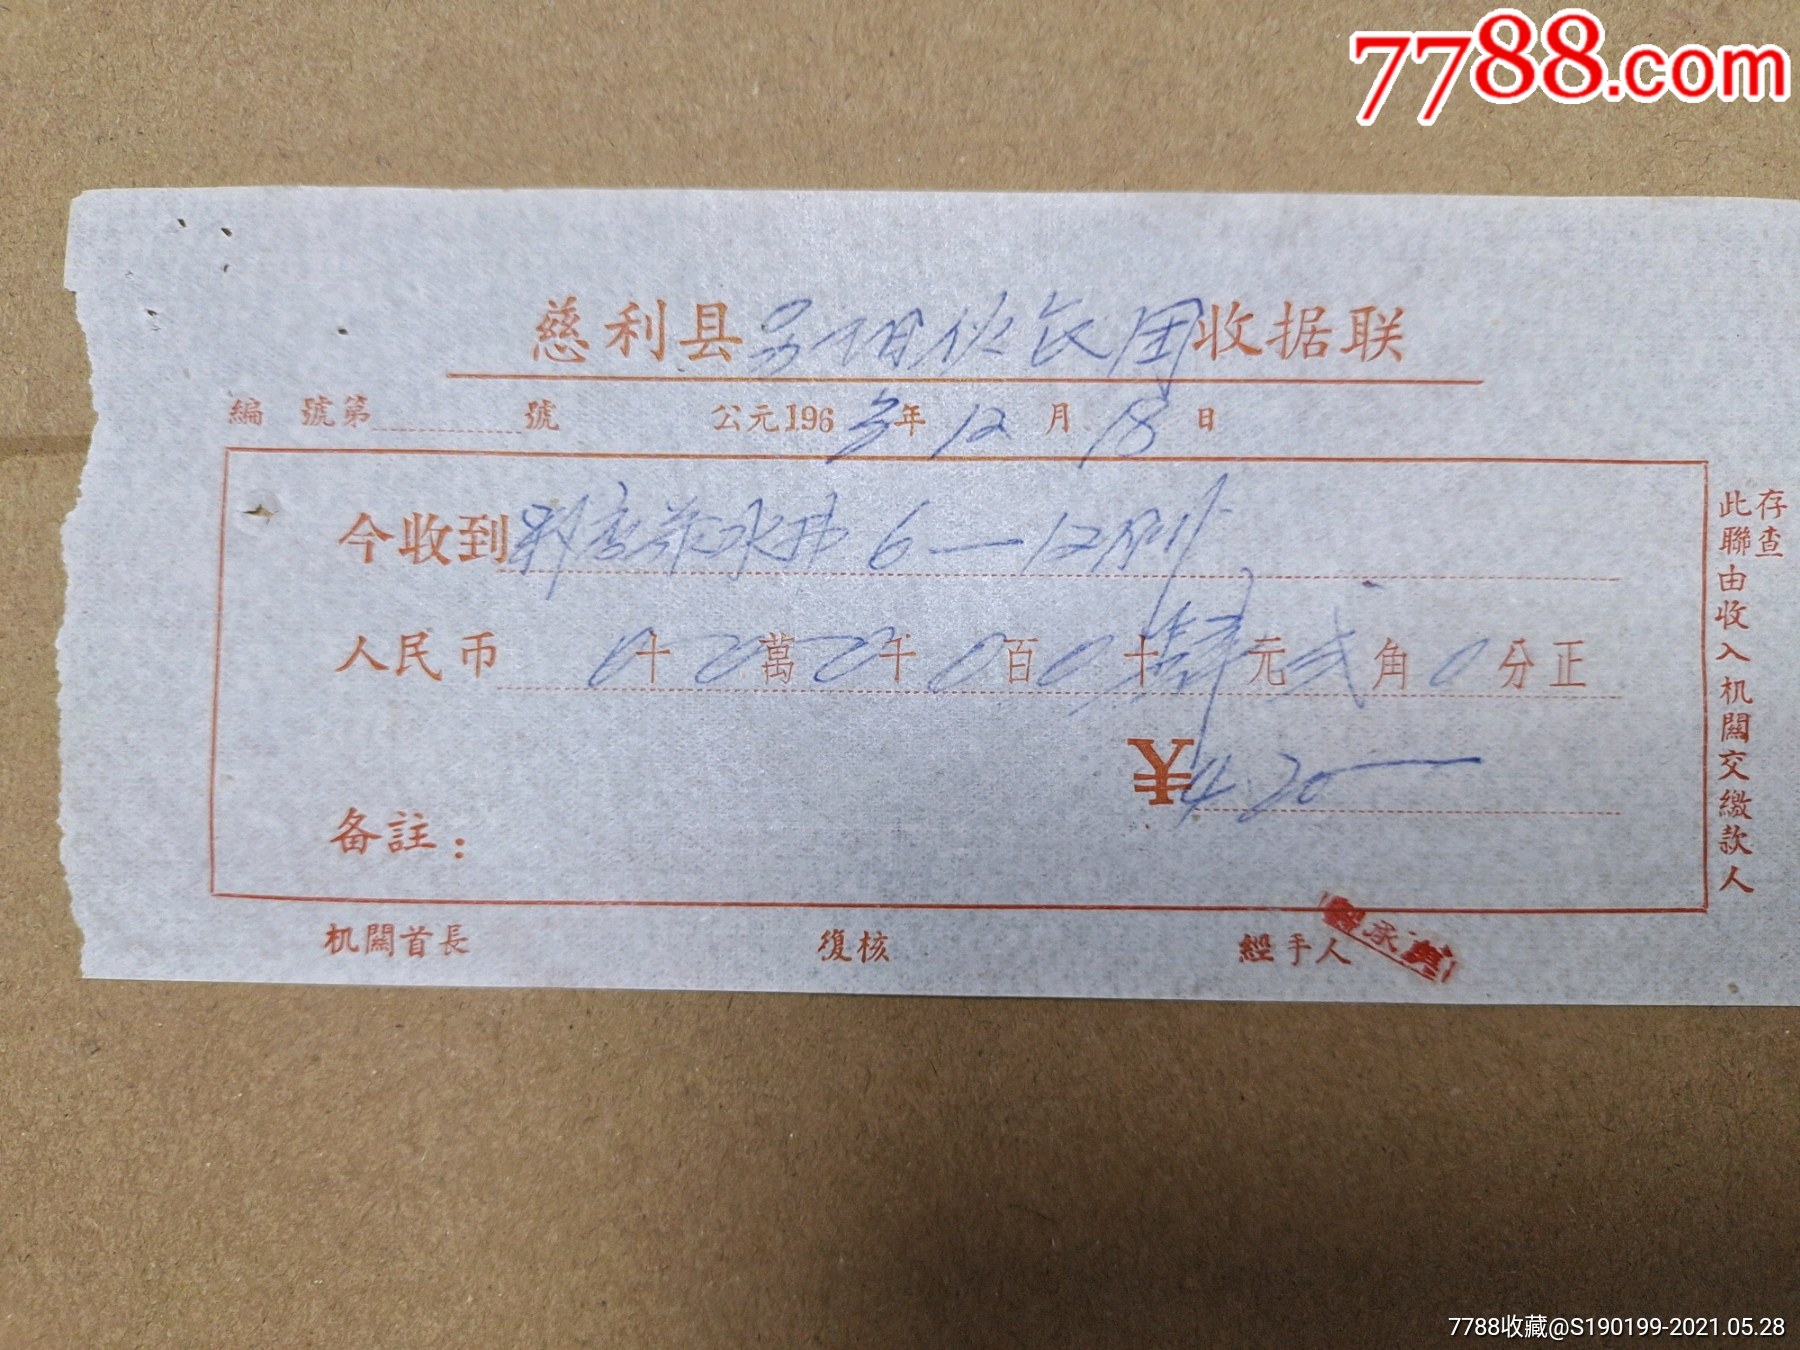 7788.com
慈利县 收据联
編 號第 號 公元1963年12月18日
今收到 茶水 6—12
人民币 0十0萬0千0百0十肆元弍角0分正
¥4.20
备註：
机關首長 復核 經手人
承
此聯由收入机關交繳款人
存查
7788收藏@S190199-2021.05.28